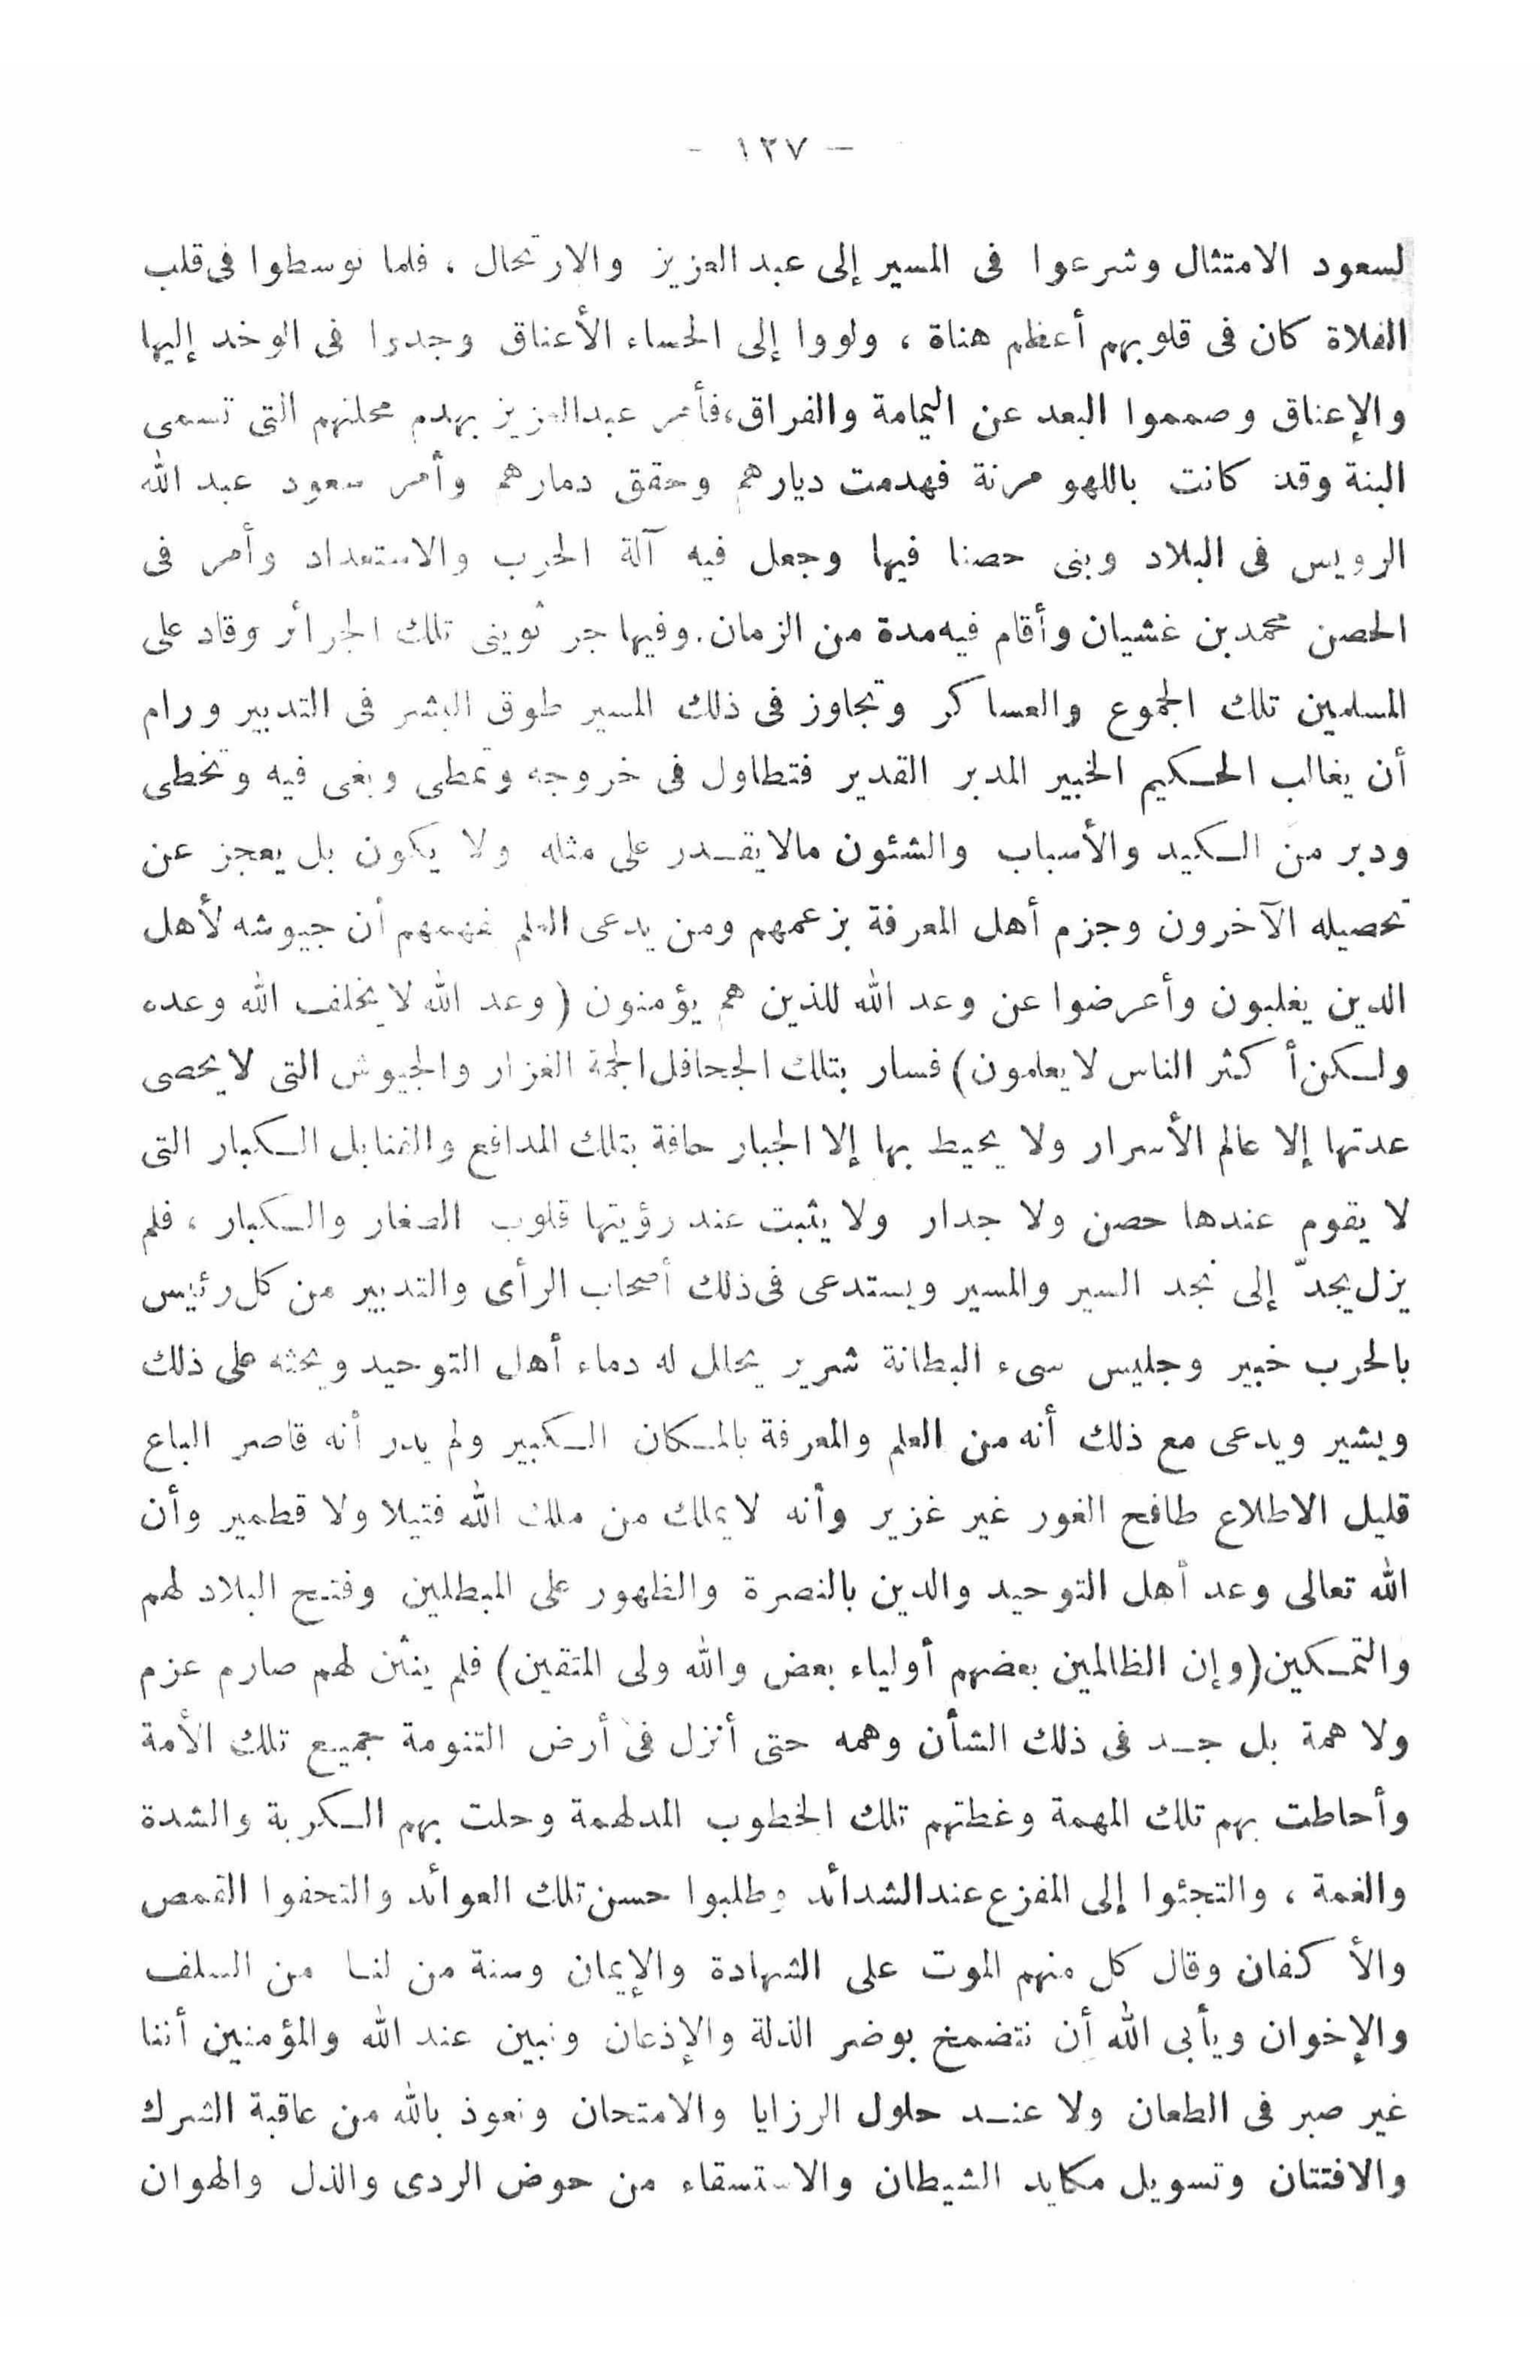 – ١٣٧ –
لسعود الامتثال وشرعوا فى المسير إلى عبد العزيز والارتحال ، فلما توسطوا فى قلب
الفلاة كان فى قلوبهم أعظم هناة ، ولووا إلى الحساء الأعناق وجدوا فى الوخد إليها
والإعناق وصمموا البعد عن اليمامة والفراق،فأمر عبدالعزيز بهدم محلتهم التى تسمى
البنة وقد كانت باللهو مرنة فهدمت ديارهم وحقق دمارهم وأمر سعود عبد الله
الرويس فى البلاد وبنى حصنا فيها وجعل فيه آلة الحرب والاستعداد وأمر فى
الحصن محمد بن غشيان وأقام فيه مدة من الزمان. وفيها جر ثوينى تلك الجرائر وقاد على
المسلمين تلك الجموع والعساكر وتجاوز فى ذلك المسير طوق البشر فى التدبير ورام
أن يغالب الحكيم الخبير المدبر القدير فتطاول فى خروجه وتمطى وبغى فيه وتخطى
ودبر من الكيد والأسباب والشئون مالا يقدر على مثله ولا يكون بل يعجز عن
تحصيله الآخرون وجزم أهل المعرفة بزعمهم ومن يدعى العلم بفهمهم أن جيوشه لأهل
الدين يغلبون وأعرضوا عن وعد الله للذين هم يؤمنون ( وعد الله لا يخلف الله وعده
ولكن أكثر الناس لا يعلمون) فسار بتلك الجحافل الجمة الغزار والجيوش التى لا يحصى
عدتها إلا عالم الأسرار ولا يحيط بها إلا الجبار حافة بتلك المدافع والقنابل الكبار التى
لا يقوم عندها حصن ولا جدار ولا يثبت عند رؤيتها قلوب الصغار والكبار ، فلم
يزل يجدّ إلى نجد السير والمسير ويستدعى فى ذلك أصحاب الرأى والتدبير من كل رئيس
بالحرب خبير وجليس سىء البطانة شرير يحلل له دماء أهل التوحيد ويحثه على ذلك
ويشير ويدعى مع ذلك أنه من العلم والمعرفة بالمكان الكبير ولم يدر أنه قاصر الباع
قليل الاطلاع طافح الغور غير غزير وأنه لا يملك من ملك الله فتيلا ولا قطمير وأن
الله تعالى وعد أهل التوحيد والدين بالنصرة والظهور على المبطلين وفتح البلاد لهم
والتمكين(وإن الظالمين بعضهم أولياء بعض والله ولى المتقين) فلم ينثن لهم صارم عزم
ولا همة بل جد فى ذلك الشأن وهمه حتى أنزل فى أرض التنومة جميع تلك الأمة
وأحاطت بهم تلك المهمة وغطتهم تلك الخطوب المدلهمة وحلت بهم الكربة والشدة
والغمة ، والتجئوا إلى المفزع عندالشدائد وطلبوا حسن تلك العوائد والتحفوا القمص
والأكفان وقال كل منهم الموت على الشهادة والإيمان وسنة من لنا من السلف
والإخوان ويأبى الله أن نتضمخ بوضر الذلة والإذعان ونبين عند الله والمؤمنين أننا
غير صبر فى الطعان ولا عند حلول الرزايا والامتحان ونعوذ بالله من عاقبة الشرك
والافتتان وتسويل مكايد الشيطان والاستسقاء من حوض الردى والذل والهوان